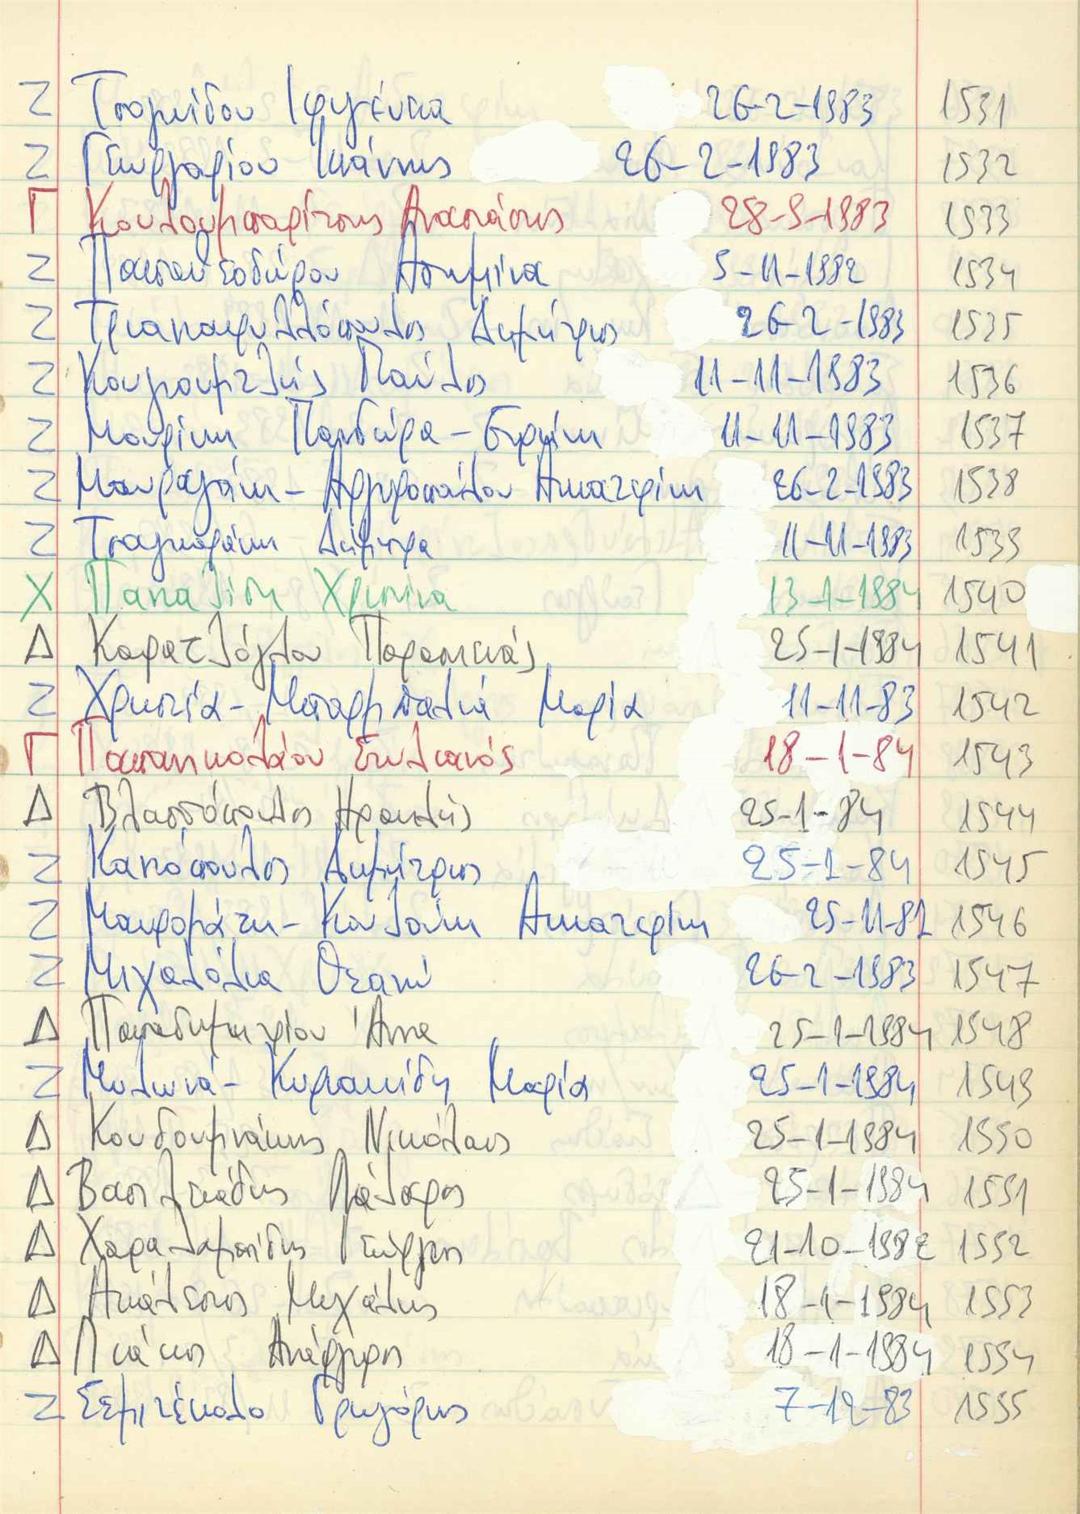 Ζ Τσαγκίδου Ιφιγένεια 26-2-1983 1531
Ζ Γεωργαρίου Ιωάννης 26-2-1983 1532
Γ Κουλουμπαρίτσης Αναστάσιος 28-9-1983 1533
Ζ Παπαθεοδώρου Ασημίνα 5-11-1982 1534
Ζ Τριανταφυλλόπουλος Δημήτριος 26-2-1983 1535
Ζ Κουγιουμτζής Παύλος 11-11-1983 1536
Ζ Μαυρίκη Πανδώρα-Ειρήνη 11-11-1983 1537
Ζ Μαυραγάνη-Αργυροπούλου Αικατερίνη 26-2-1983 1538
Ζ Τσαγκαράκη Δήμητρα 11-11-1983 1539
Χ Παπαλίτση Χριστίνα 13-1-1984 1540
Δ Καρατζόγλου Παρασκευάς 25-1-1984 1541
Ζ Χρηστιά-Μπαρμπαλιά Μαρία 11-11-83 1542
Γ Παπανικολάου Στυλιανός 18-1-84 1543
Δ Βλασσόπουλος Ηρακλής 25-1-84 1544
Ζ Καπόπουλος Δημήτριος 25-1-84 1545
Ζ Μαυρομάτη-Κουλούκη Αικατερίνη 25-11-82 1546
Ζ Μιχαλόλια Θεανώ 26-2-1983 1547
Δ Παπαδημητρίου Άννα 25-1-1984 1548
Ζ Μυλωνά-Κυριακίδη Μαρία 25-1-1984 1549
Δ Κουδουμνάκης Νικόλαος 25-1-1984 1550
Δ Βασιλειάδης Λάζαρος 25-1-1984 1551
Δ Χαραλαμπίδης Γεώργιος 21-10-1982 1552
Δ Ακάλεστος Μιχάλης 18-1-1984 1553
Δ Λιάκος Ανάργυρος 18-1-1984 1554
Ζ Σεμιτέκολο Γρηγόρης 7-12-83 1555